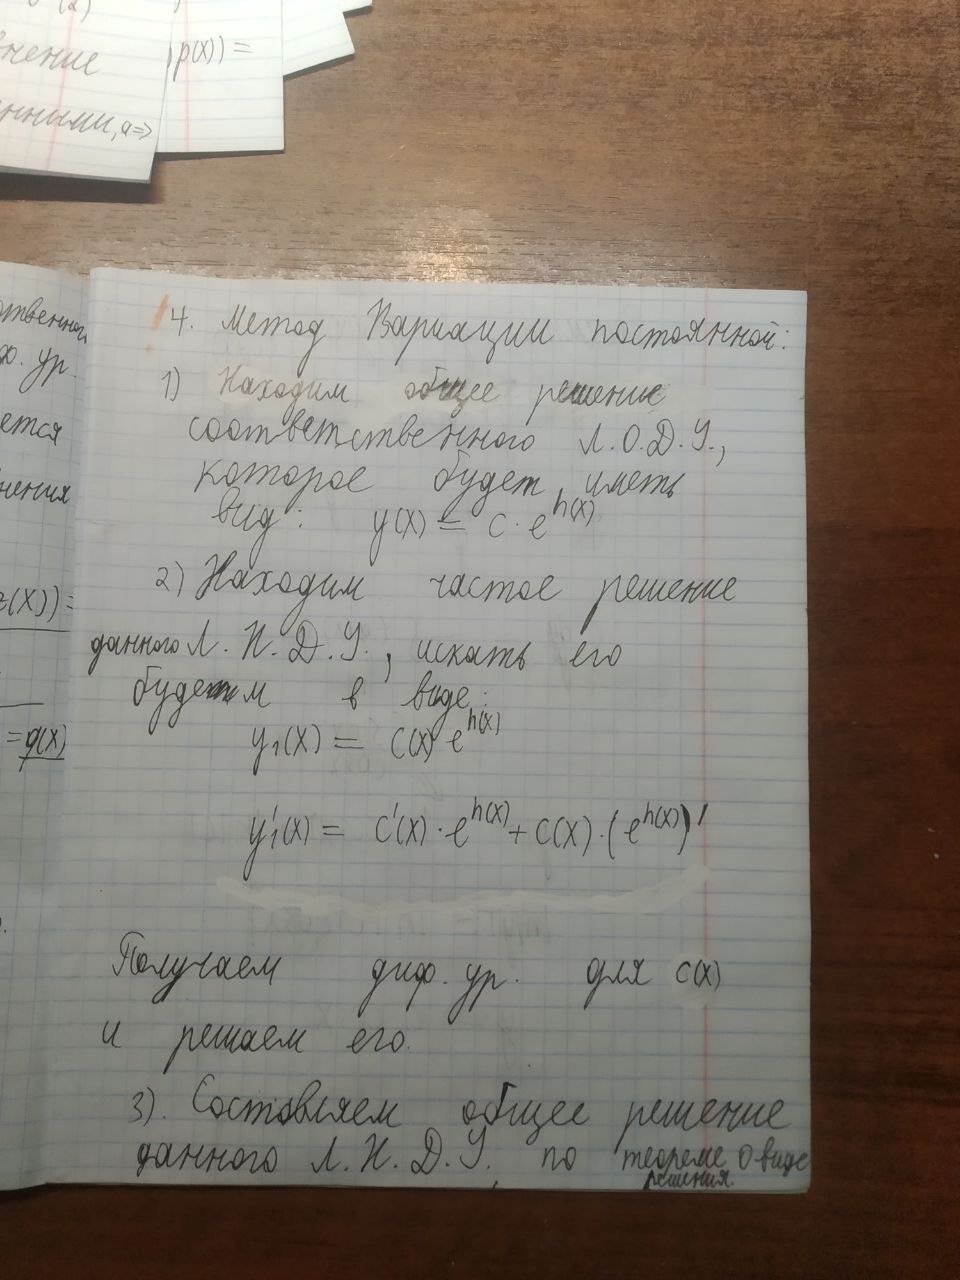 (2)
p(x)) =
внение
нными, а =>
ственной
ф. ур.
ется
нения
z(x)) =
= q(x)
14. Метод Вариации постоянной:
1) Находим общее решение
соответственного Л.О.Д.У.,
которое будет иметь
вид: y(x) = c · e^h(x)
2) Находим частое решение
данного Л. Н. Д. У., искать его
будем в виде:
y₁(x) = c(x) e^h(x)
y₁'(x) = c'(x) · e^h(x) + c(x) · (e^h(x))'
Получаем диф. ур. для c(x)
и решаем его.
3). Составляем общее решение
данного Л. Н. Д. У. по теореме о виде
решения.